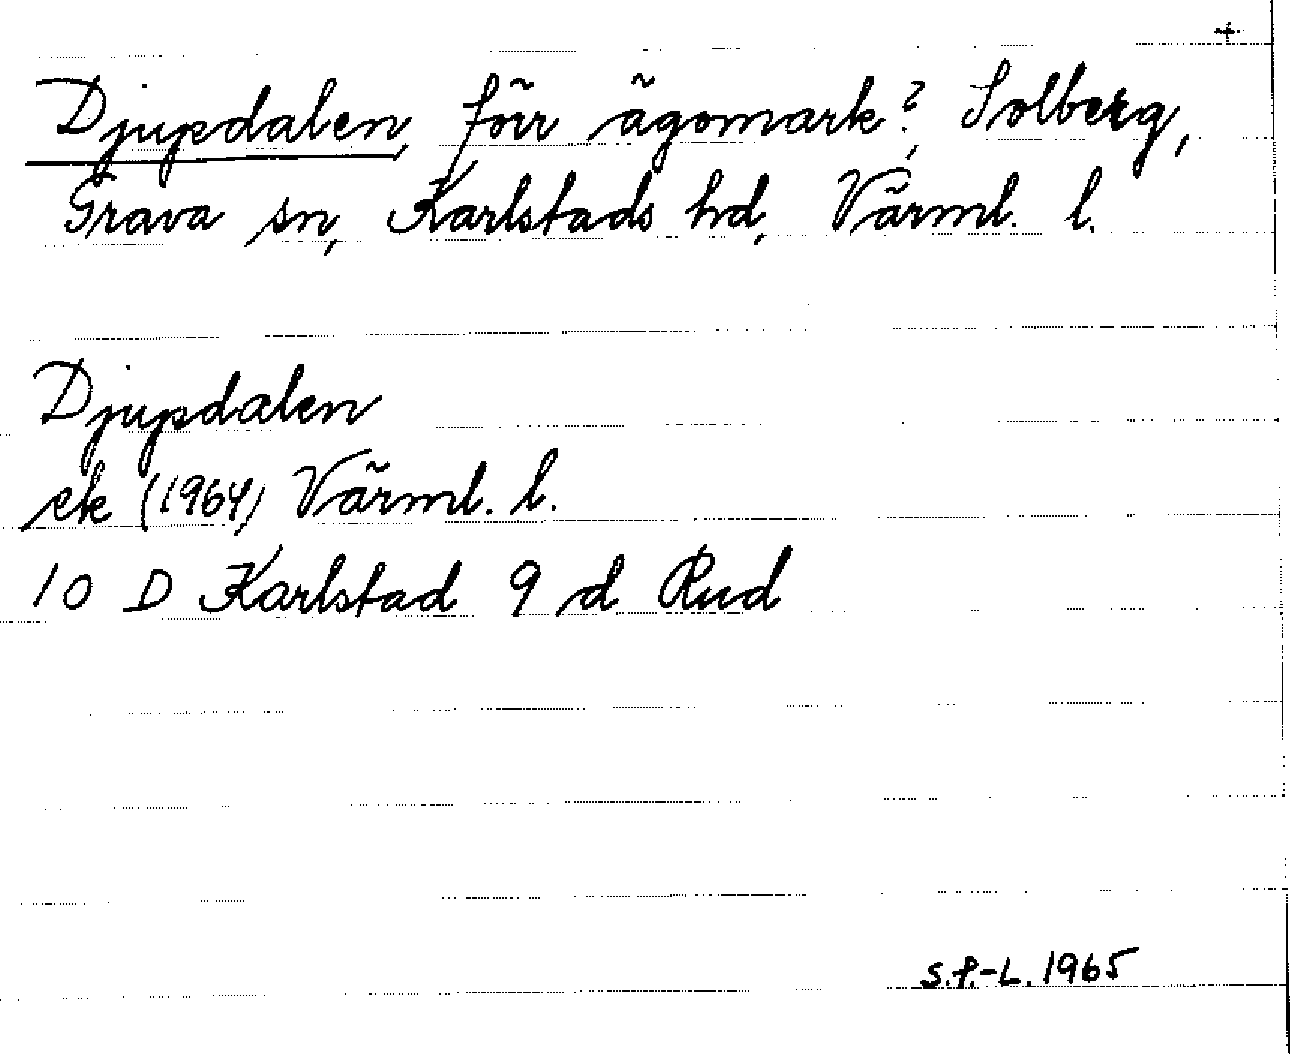 +
Djupdalen, förr ägomark?, Solberg,
Grava sn, Karlstads hd, Värml. l.
Djupdalen
ek (1964) Värml. l.
10 D Karlstad 9 d Rud
S.F.-L. 1965